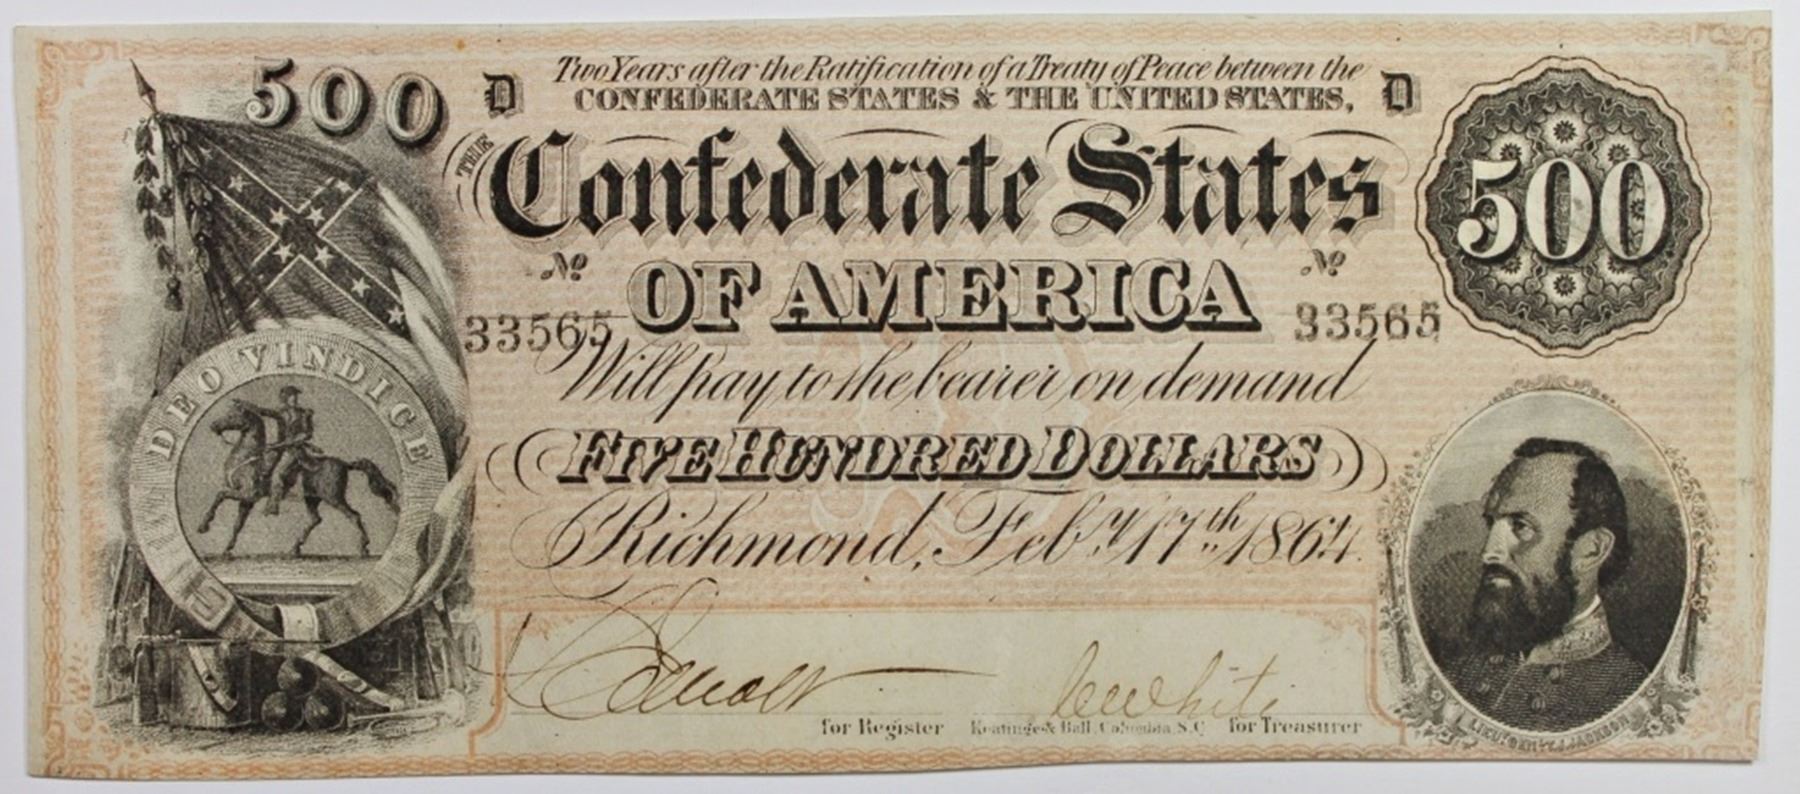 500
D
Two Years after the Ratification of a Treaty of Peace between the
D
CONFEDERATE STATES & THE UNITED STATES,
500
THE Confederate States
No
No
OF AMERICA
33565
33565
Will pay to the bearer on demand
DEO VINDICE
FIVE HUNDRED DOLLARS
Richmond, Feby. 17th 1864.
White
for Register
Keatinge & Ball, Columbia S.C.
for Treasurer
LIEUT GEN T.J. JACKSON